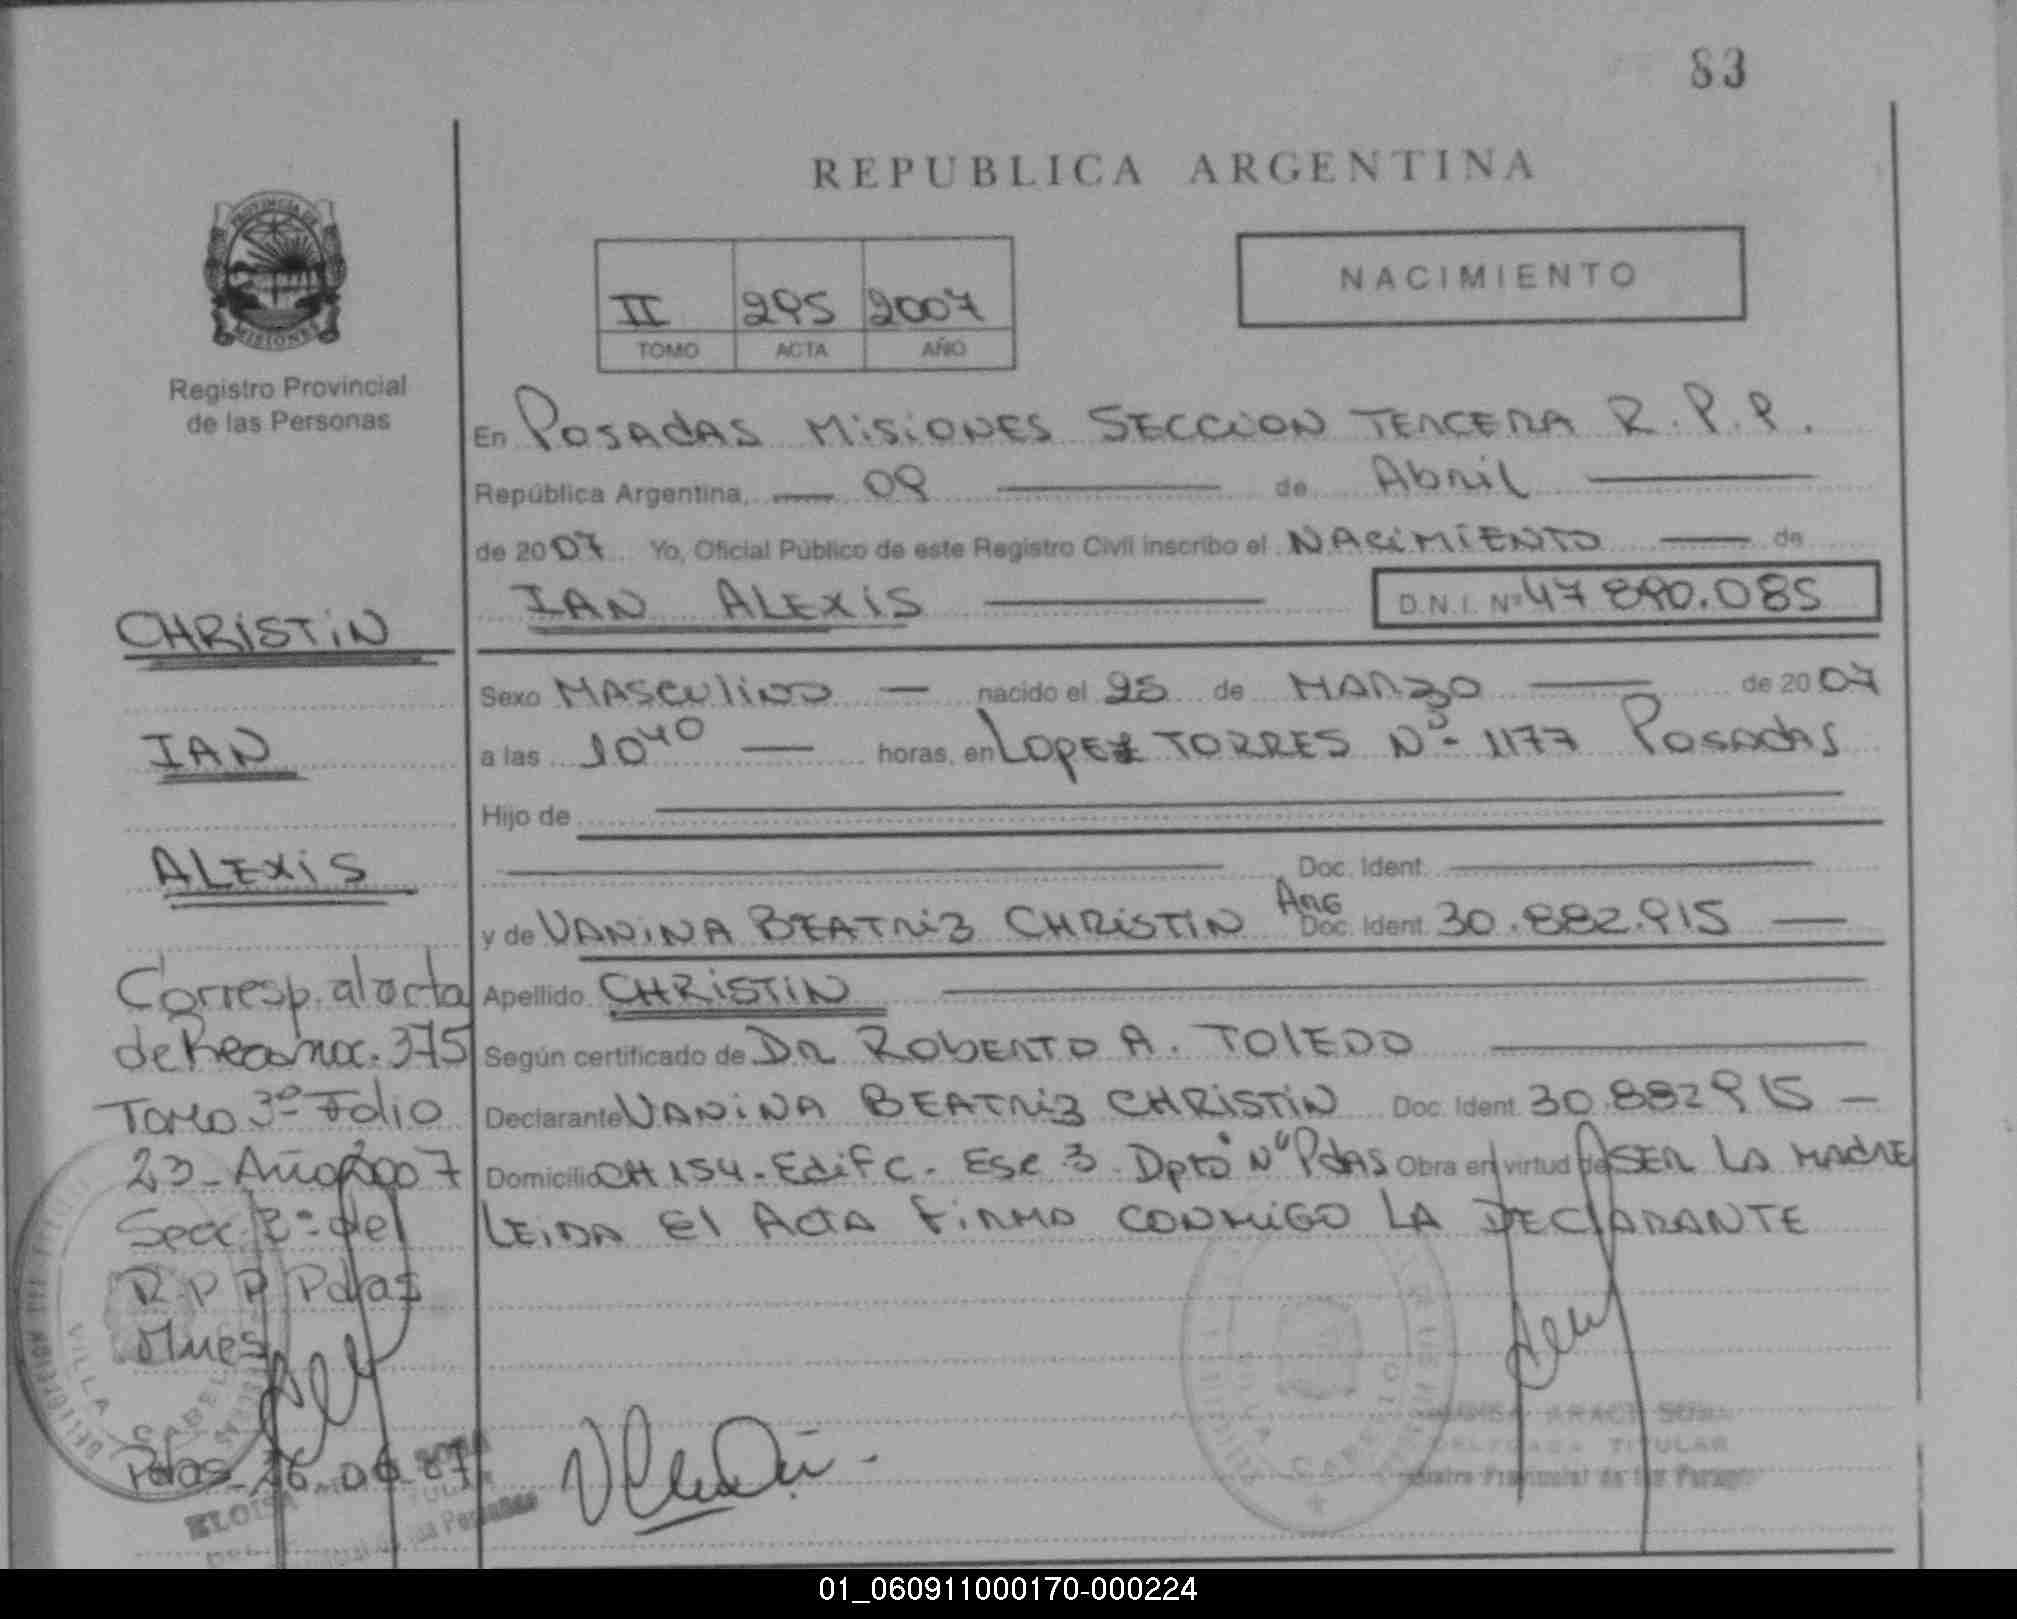 83
REPUBLICA ARGENTINA
PROVINCIA DE
MISIONES
Registro Provincial
de las Personas
II 295 2007
TOMO ACTA AÑO
NACIMIENTO
En POSADAS MISIONES SECCION TERCERA R.P.P.
República Argentina, 09 de Abril
de 2007 Yo, Oficial Público de este Registro Civil inscribo el NACIMIENTO de
IAN ALEXIS D.N.I. Nº 47 890.085
Sexo MASCULINO nacido el 25 de MARZO de 2007
a las 10 40 horas, en LOPEZ TORRES Nº 1177 Posadas
Hijo de
Doc. Ident.
y de VANINA BEATRIZ CHRISTIN ARG Doc. Ident. 30.882.915
Apellido CHRISTIN
Según certificado de DR ROBERTO A. TOLEDO
Declarante VANINA BEATRIZ CHRISTIN Doc. Ident. 30.882 915
Domicilio CH 154 - Edif C - Esc 3 Dpto Nº Pdas Obra en virtud de SER LA MADRE
LEIDA El ActA FIRMA CONMIGO LA DECLARANTE
CHRISTIN
IAN
ALEXIS
Corresp. al acta
de Reconoc. 375
Tomo 3º Folio
23 - Año 2007
Secc 2º del
R.P.P Pdas
Mnes
Pdas - 26 - 06 - 07
VILLA CABELLO
ELOISA
TITULAR
DELEGADA TITULAR
01_060911000170-000224